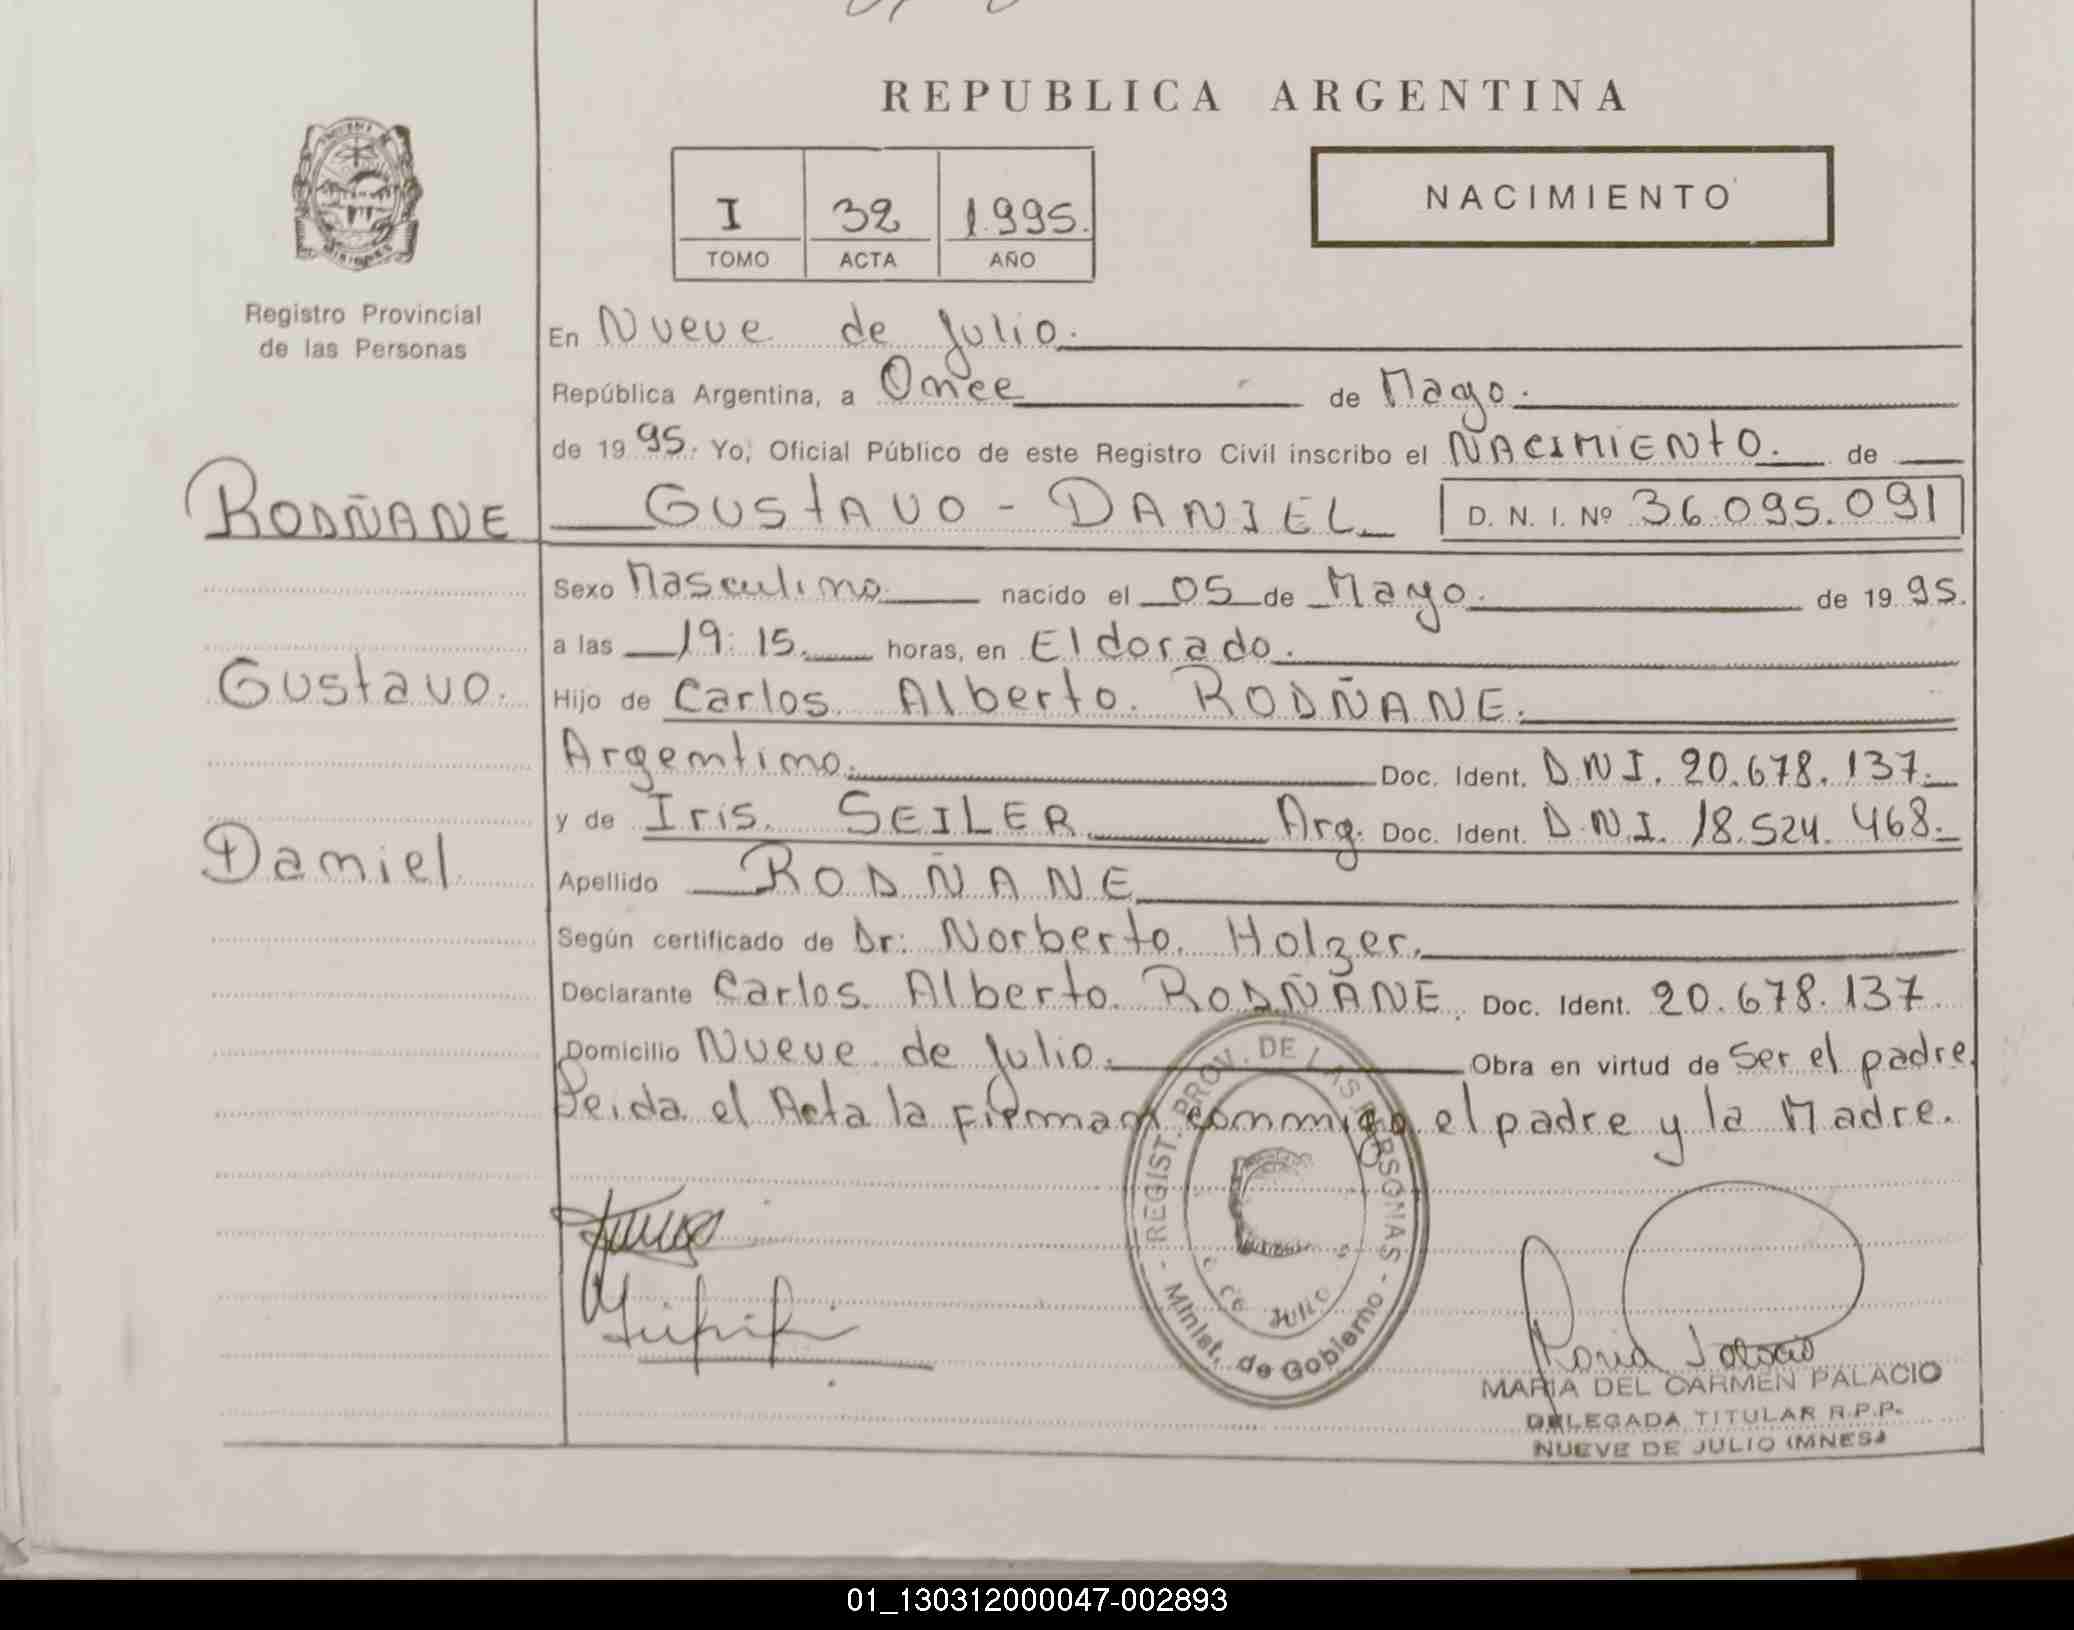 REPUBLICA ARGENTINA
I 32 1.995.
TOMO ACTA AÑO
NACIMIENTO
Registro Provincial
de las Personas
En Nueve de Julio.
República Argentina, a Once de Mayo.
de 19 95. Yo, Oficial Público de este Registro Civil inscribo el NACIMIENTO. de
RODÑANE GUSTAVO - DANIEL D. N. I. Nº 36.095.091
Sexo Masculino nacido el 05 de Mayo. de 19 95.
a las 19:15. horas, en Eldorado.
Gustavo. Hijo de Carlos Alberto. RODÑANE.
Argentino. Doc. Ident. D.N.I. 20.678.137.
y de Iris. SEILER Arg. Doc. Ident. D.N.I. 18.524.468.
Daniel Apellido RODÑANE
Según certificado de Dr: Norberto. Holzer.
Declarante Carlos. Alberto. RODÑANE. Doc. Ident. 20.678.137.
Domicilio Nueve de Julio. Obra en virtud de Ser el padre.
Leida el Acta la Firman conmigo el padre y la Madre.
- REGIST. PROV. DE LAS PERSONAS -
Minist. de Gobierno
Julio
MARIA DEL CARMEN PALACIO
DELEGADA TITULAR R.P.P.
NUEVE DE JULIO (MNES)
01_130312000047-002893